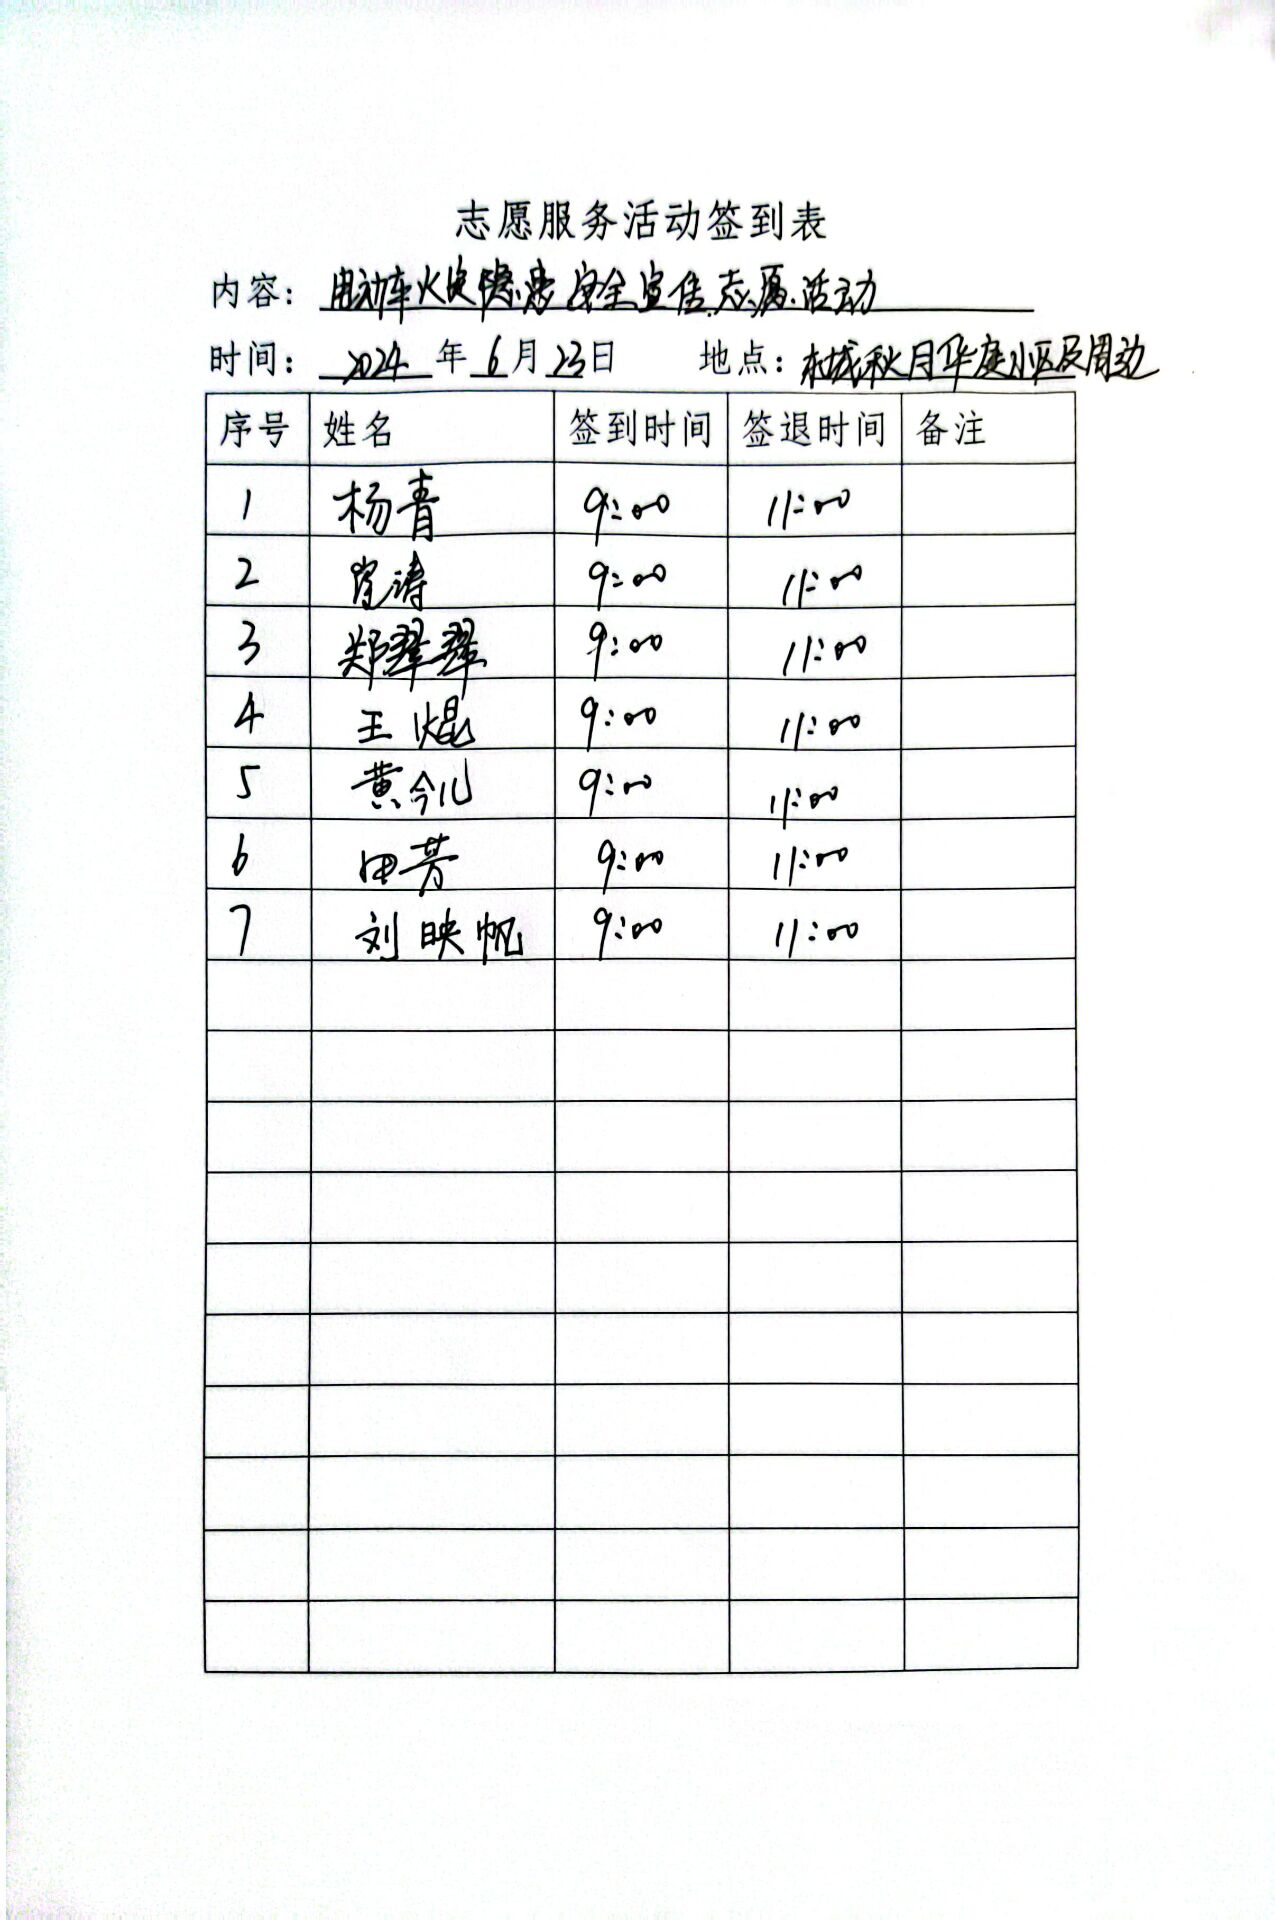 志愿服务活动签到表
内容：电动车火灾隐患安全宣传志愿活动
时间：2024年6月23日 地点：木城秋月华庭小区及周边
序号 姓名 签到时间 签退时间 备注
1 杨青 9:00 11:00
2 肖涛 9:00 11:00
3 郑翠翠 9:00 11:00
4 王焜 9:00 11:00
5 黄令儿 9:00 11:00
6 田芳 9:00 11:00
7 刘映帆 9:00 11:00